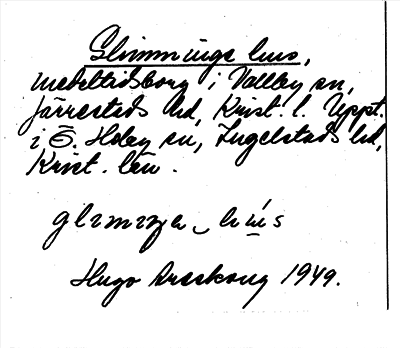 Glimminge hus,
medeltidsborg i Vallby sn,
Järrestads hd, Krist. l. Uppt.
i Ö. Hoby sn, Ingelstads hd,
Krist. län.
glɩmɩŋə ‿ hús
Hugo Areskoug 1949.